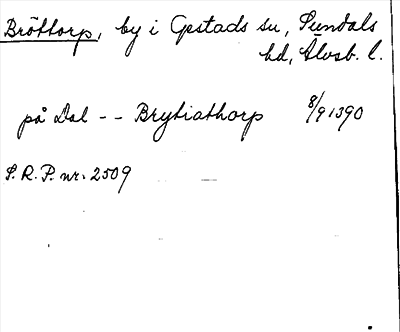 Bröttorp, by i Gestads sn, Sundals
hd, Älvsb. l.
på Dal -- Brytiathorp 8/9 1390
S.R.P. nr. 2509